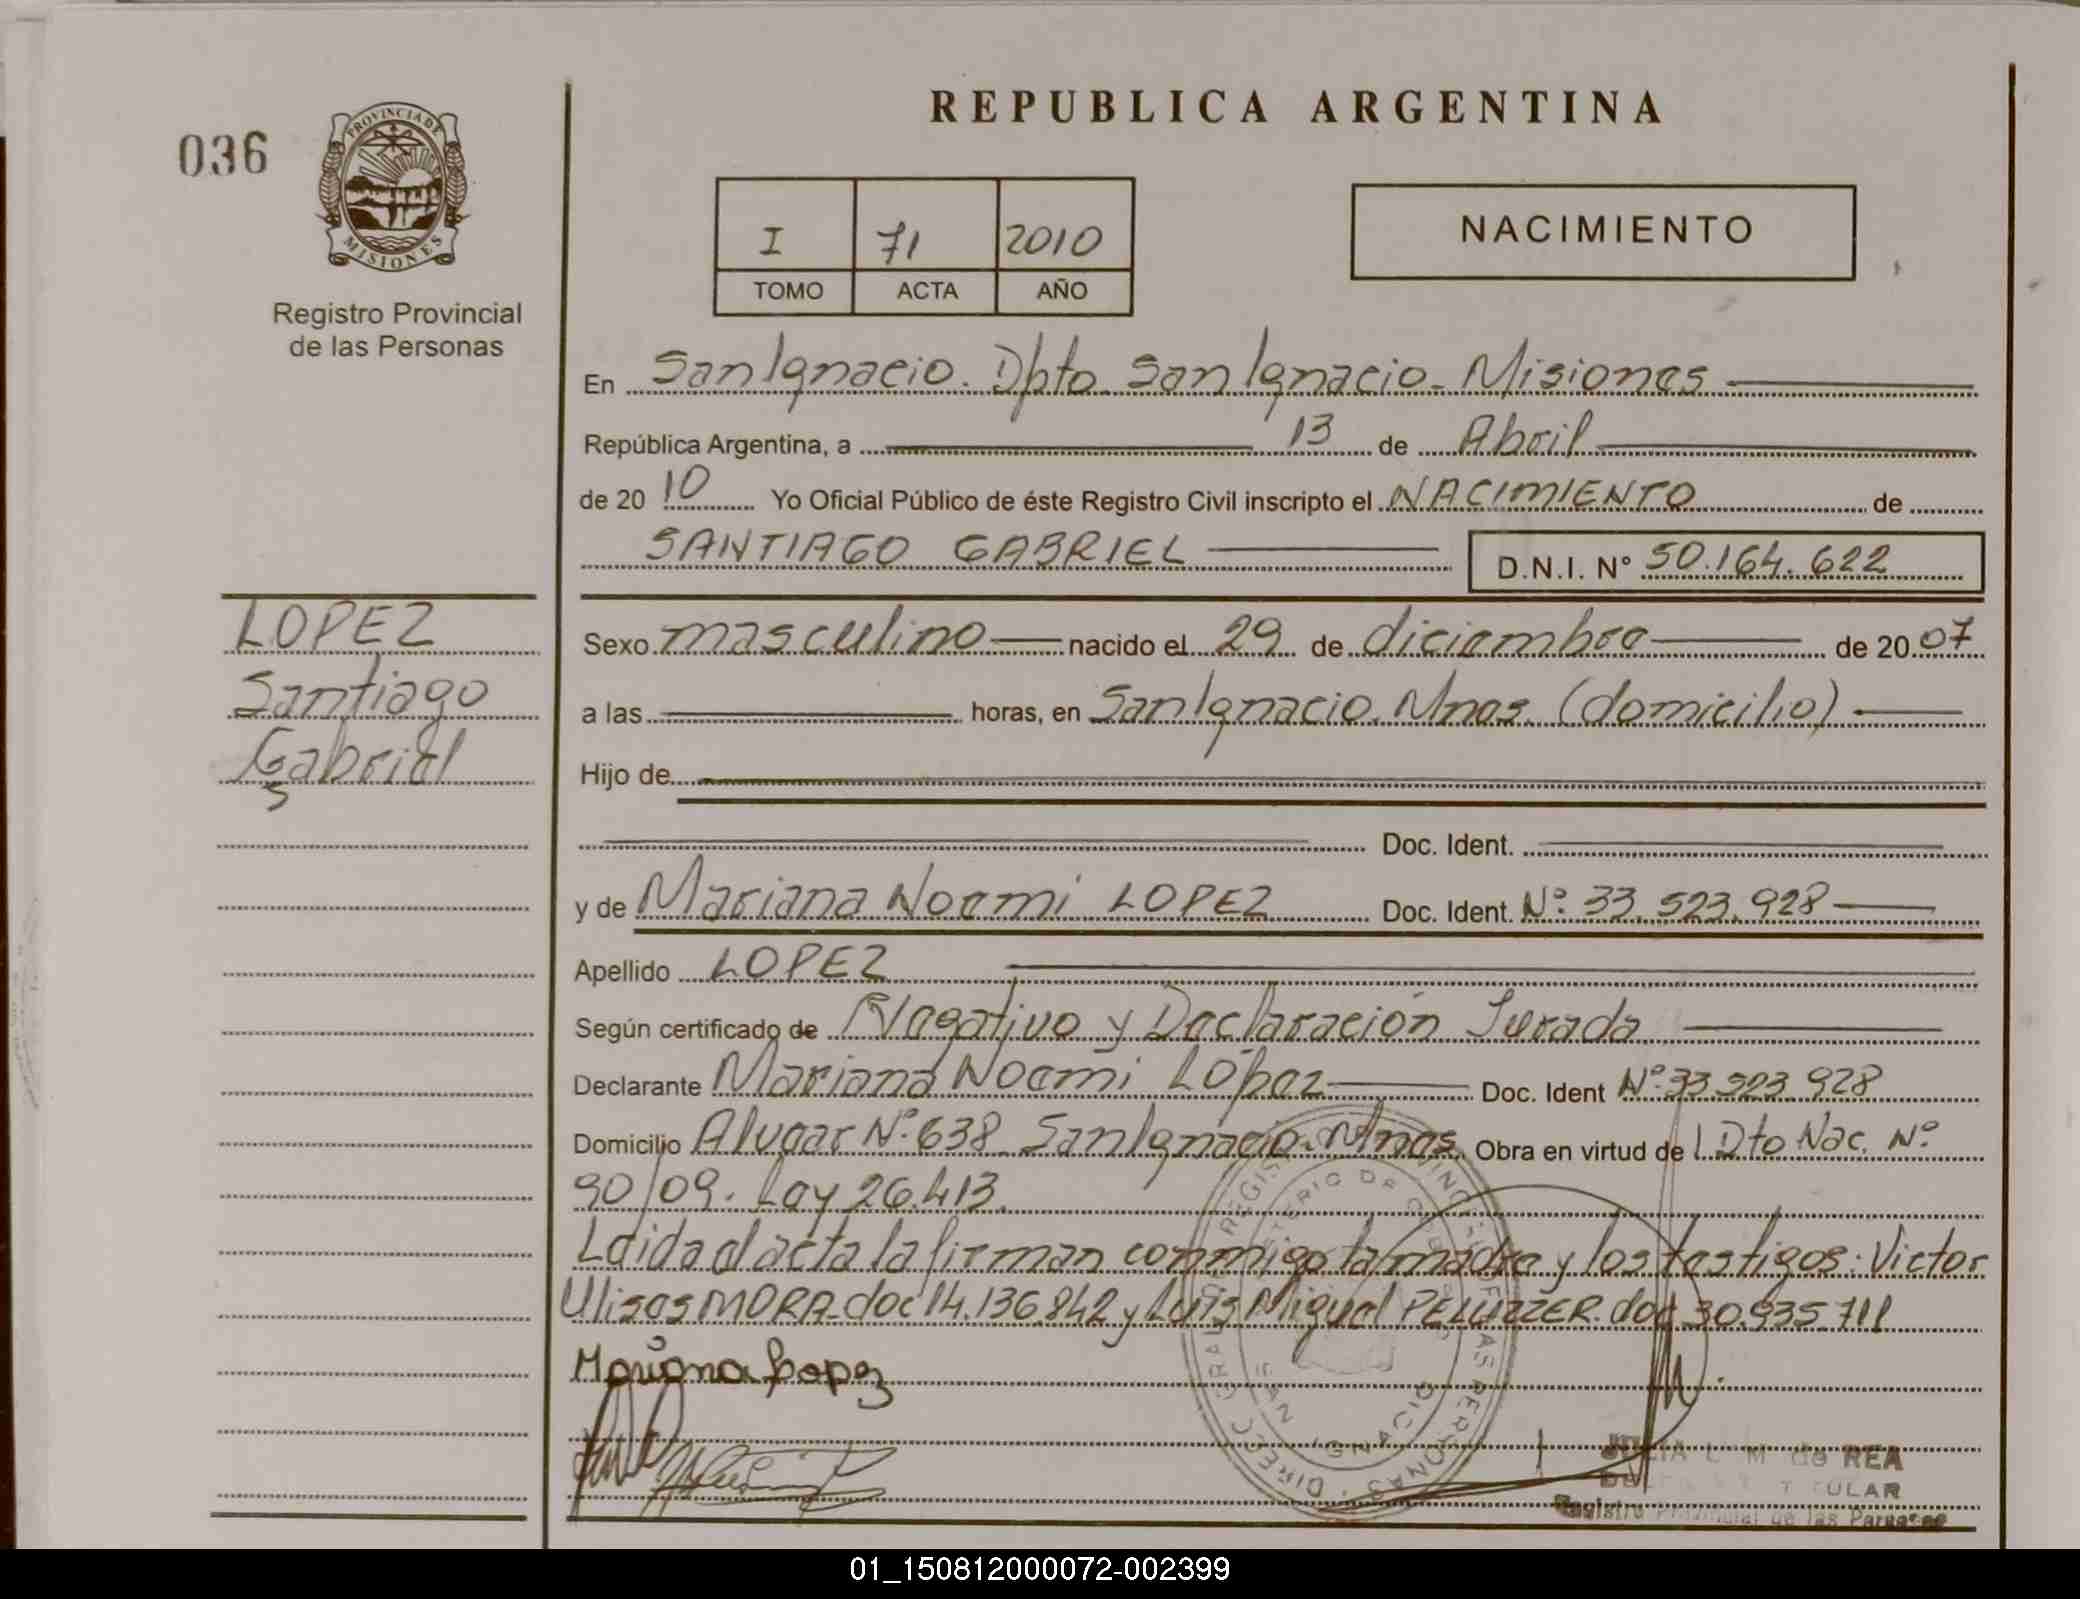 REPUBLICA ARGENTINA
036
PROVINCIA DE MISIONES
Registro Provincial
de las Personas
I 71 2010
TOMO ACTA AÑO
NACIMIENTO
En San Ignacio. Dpto San Ignacio - Misiones
República Argentina, a 13 de Abril
de 20 10 Yo Oficial Público de éste Registro Civil inscripto el NACIMIENTO de
SANTIAGO GABRIEL D.N.I. N° 50.164.622
LOPEZ
Santiago
Gabriel
Sexo masculino nacido el 29 de diciembre de 20 07
a las horas, en San Ignacio. Mnes. (domicilio)
Hijo de
Doc. Ident.
y de Mariana Noemi LOPEZ Doc. Ident. Nº: 33.523.928
Apellido LOPEZ
Según certificado de Negativo y Declaración Jurada
Declarante Mariana Noemi López Doc. Ident Nº: 33.523.928
Domicilio Nº: 638 San Ignacio. Mnes. Obra en virtud de Dto Nac. Nº
90/09. Ley 26.413.
Leida el acta la firman conmigo la madre y los testigos: Victor
Ulises MORA doc 14.136.842 y Luis Miguel PELLIZZER. doc 30.935.711
Mariana Lopez
SAN IGNACIO
de REA
TULAR
Registro Provincial de las Personas
01_150812000072-002399